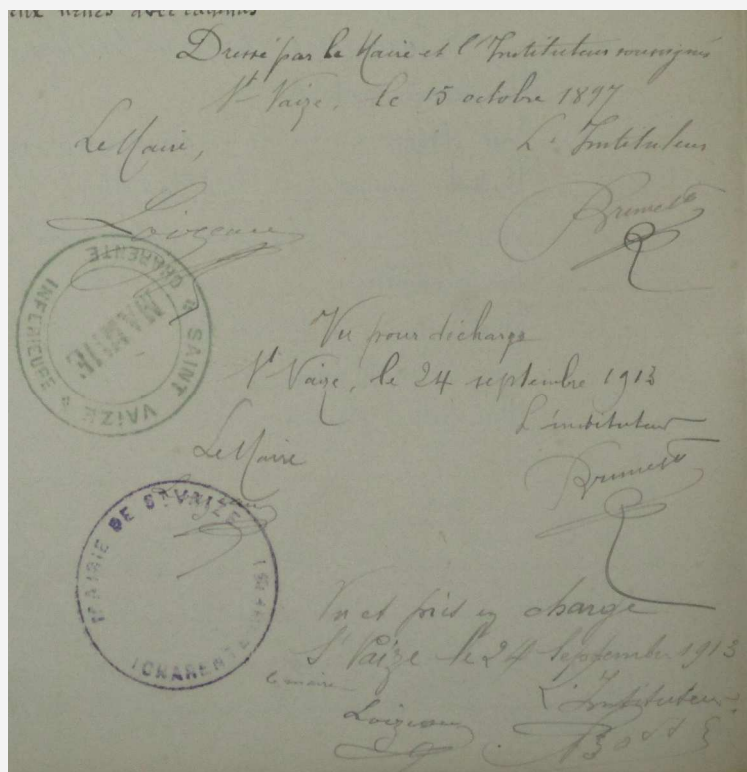 Dressé par le Maire et l'Instituteur soussignés
St Vaize, le 15 octobre 1897
Le Maire,
L'Instituteur
Loizeau
Brunet
SAINT VAIZE
CHARENTE INFERIEURE
MAIRIE
Vu pour décharge
St Vaize, le 24 septembre 1913
L'instituteur
Le Maire
Brunet
MAIRIE DE St VAIZE
(CHARENTE
Vu et pris en charge
St Vaize le 24 Septembre 1913
le maire
L'Instituteur
Loizeau